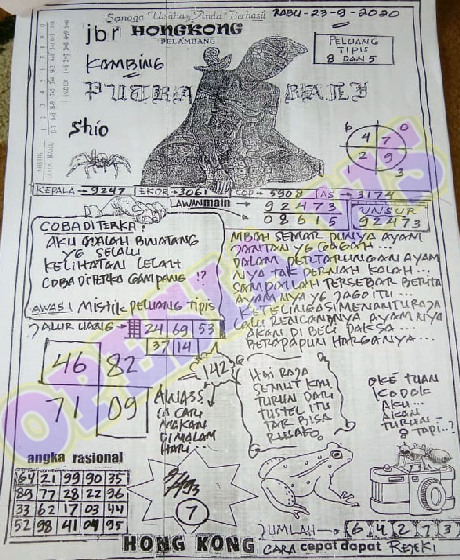 Semoga Usaha Anda Berhasil
RABU-23-9-2020
jbr HONGKONG
PALEMBANG
PELUANG
TIPIS
8 DAN 5
KAMBING
PUTRA BALI
Shio
6 0
4 7
2 9
3
KEPALA→9247 EKOR→3061 COP→5908 TAS→3174
LAWAN main
92473
08615
UNSUR
92473
COBA DI TERKA?
AKU ADALAH BINATANG
YG SELALU
KELIHATAN LELAH
COBA DITERKA GAMPANG !?
MBAH SEMAR PUNYA AYAM
JANTAN YG GAGAH...
DALAM PERTARUNGAN AYAM
NYA TAK PERNAH KALAH...
SAMPAILAH TERSEBAR BERITA
AYAMNYA YG JAGO ITU..
KETELINGA SI MENANTU RAJA
LALU RENCANANYA AYAMNYA
AKAN DI BELI PAKSA...
BERAPAPUN HARGANYA...
AWAS! Mistik PELUANG TIPIS
JALUR UANG→ 24 69 53
37 14
46 82
71 09
142
AWASS
IA CARI
MAKAN
DIMALAM
HARI...
HOI RAJA
SEMUT KAU
TURUN DARI
TUSTEL ITU
TAK BISA
RUSAK..
OKE TUAN
KODOK
AKU...
AKAN
TURUN
8 TAPI..?
angka rasional
64 21 99 90 35
89 77 28 22 96
33 62 17 03 44
52 98 41 04 95
7
JUMLAH→ 6 4 2 7 3
HONG KONG
CARA cepat dapat REJEKI
OPEN